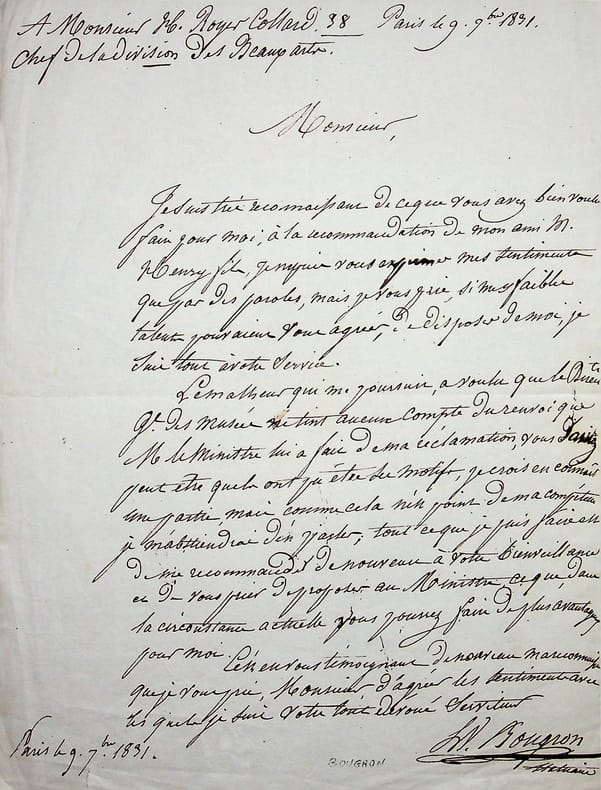 A Monsieur H. Royer Collard. 38 Paris le 9. 9bre 1831.
Chef de la division des Beauxarts.
Monsieur,
Je suis très reconnaissant de ce que vous avez bien voulu
faire pour moi, à la recommandation de mon ami M.
Henry fils, je ne puis vous exprimer mes sentiments
que par des paroles, mais je vous prie, si mes faibles
talents pouvaient vous agréer, de disposer de moi, je
suis tout à votre service.
Le malheur qui me poursuit, a voulu que le Direct
Gal des musées ne tint aucun compte du renvoi que
M le Ministre lui a fait de ma réclamation, vous
peut être quels ont pu être les motifs, je crois en connaître
une partie, mais comme cela n'est point de ma compétence
je m'abstiendrai d'en parler, tout ce que je puis faire est
de me recommander de nouveau à votre bienveillance
et de vous prier de proposer au Ministre, ce que, dans
la circonstance actuelle vous pourrez faire de plus avantageux
pour moi. C'est en vous témoignant de nouveau ma reconnaissance
que je vous prie, Monsieur d'agréer les sentiments avec
lesquels je suis votre tout dévoué Serviteur
Bougron
Statuaire
Paris le 9. 7bre 1831.
BOUGRON